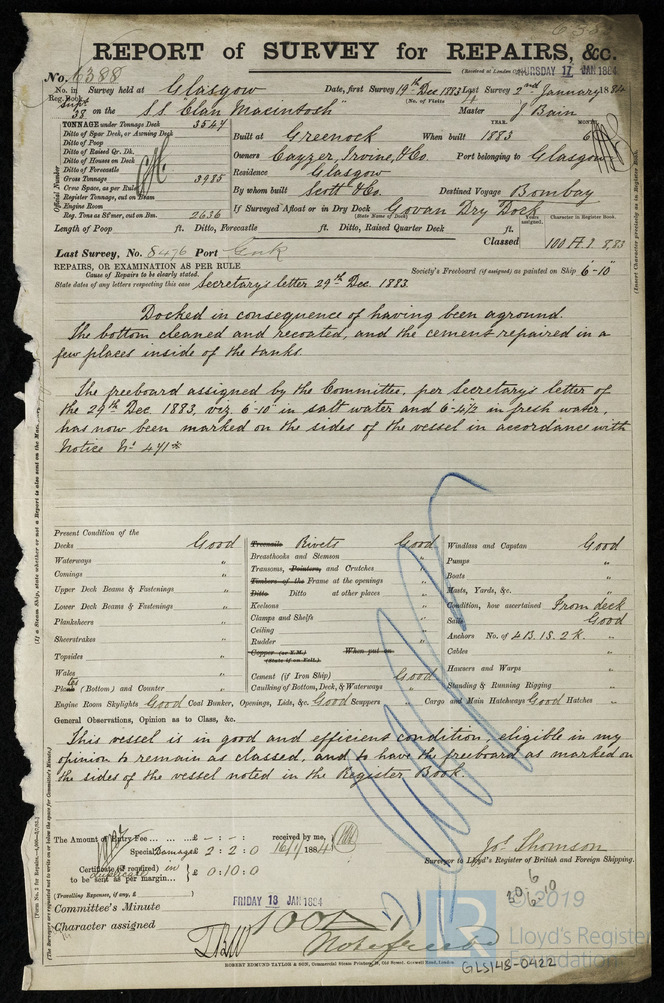 REPORT of SURVEY for REPAIRS, &c.
No. 6388
(Received at London THURSDAY 17 JAN 1884
No. in Reg. Book. Survey held at Glasgow Date, first Survey 19th Dec 1883 Last Survey 2nd January 1884
(No. of Visits 4
38 on the S.S. "Clan Macintosh" Master J Bain
TONNAGE under Tonnage Deck 3547
Ditto of Spar Deck, or Awning Deck
Ditto of Poop
Ditto of Raised Qr. Dk.
Ditto of Houses on Deck
Ditto of Forecastle
Gross Tonnage 3985
Crew Space, as per Rule
Register Tonnage, cut on Beam
Engine Room
Reg. Tons as St'mer, cut on Bm. 2636
Official Number
YEAR. MONTH.
Built at Greenock When built 1883 6
Owners Cayzer, Irvine, & Co. Port belonging to Glasgow
Residence Glasgow
By whom built Scott & Co. Destined Voyage Bombay
If Surveyed Afloat or in Dry Dock Govan Dry Dock
(State Name of Dock)
Years assigned. Character in Register Book.
Length of Poop ft. Ditto, Forecastle ft. Ditto, Raised Quarter Deck ft.
Classed 100 A.1. 8,83
(Insert Character precisely as in Register Book.
Last Survey, No. 8476 Port Cork
REPAIRS, OR EXAMINATION AS PER RULE
Cause of Repairs to be clearly stated.
Society's Freeboard (if assigned) as painted on Ship 6'-10"
State dates of any letters respecting this case Secretary's letter 29th Dec. 1883
Docked in consequence of having been aground.
The bottom cleaned and recoated, and the cement repaired in a
few places inside of the tanks.
The freeboard assigned by the Committee, per Secretary's letter of
the 29th Dec. 1883, viz. 6'-10" in salt water and 6'-4½ in fresh water,
has now been marked on the sides of the vessel in accordance with
Notice No. 471*
Present Condition of the
Decks Good
Waterways "
Comings "
Upper Deck Beams & Fastenings "
Lower Deck Beams & Fastenings "
Planksheers "
Sheerstrakes "
Topsides "
Wales "
Plates (Bottom) and Counter "
Treenails Rivets Good
Breasthooks and Stemson "
Transoms, Pointers, and Crutches "
Timbers of the Frame at the openings "
Ditto Ditto at other places "
Keelsons "
Clamps and Shelfs "
Ceiling "
Rudder "
Copper (or Y.M.) When put on
(State if on Felt.)
Cement (if Iron Ship) Good
Caulking of Bottom, Deck, & Waterways "
Windlass and Capstan Good
Pumps "
Boats "
Masts, Yards, &c. "
Condition, how ascertained From deck
Sails Good
Anchors No. of 4B. 1S. 2K. "
Cables "
Hawsers and Warps "
Standing & Running Rigging "
Engine Room Skylights Good Coal Bunker, Openings, Lids, &c. Good Scuppers " Cargo and Main Hatchways Good Hatches "
General Observations, Opinion as to Class, &c.
This vessel is in good and efficient condition, eligible in my
opinion to remain as classed, and to have the freeboard as marked on
the sides of the vessel noted in the Register Book.
The Amount of Entry Fee £ - : - : received by me,
Special Damage 2 : 2 : 0 16/1/1884
Certificate (if required) in duplicate
to be sent as per margin £ 0:10:0
(Travelling Expenses, if any, £
Jos. Thomson
Surveyor to Lloyd's Register of British and Foreign Shipping.
Committee's Minute FRIDAY 18 JAN 1884
Character assigned 100A1
Note freeboard
30.6
6.10
ROBERT EDMUND TAYLOR & SON, Commercial Steam Printers, 19, Old Street, Goswell Road, London.
LR
© 2019
Lloyd's Register
Foundation
GLS148-0422